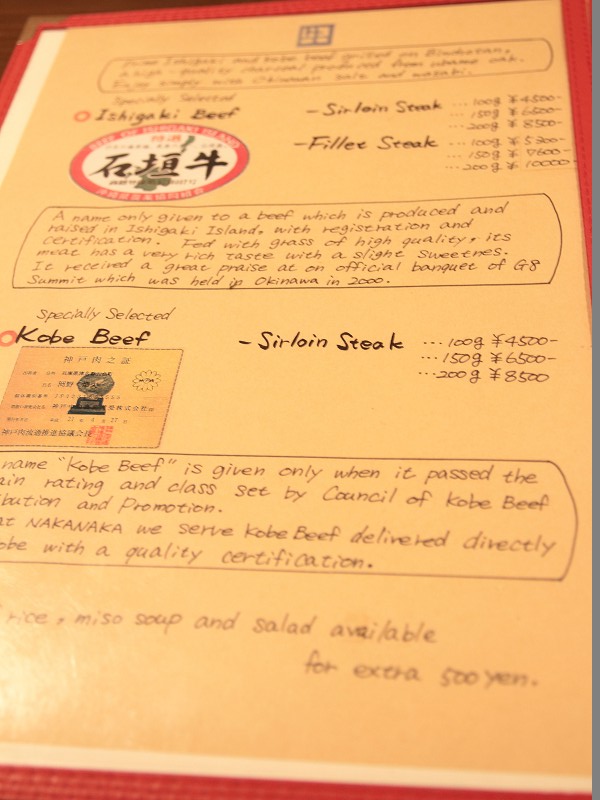 Prime Ishigaki and Kobe beef grilled on Binchotan,
a high-quality charcoal produced from ubame oak.
Enjoy simply with Okinawan salt and wasabi.
Specially Selected
Ishigaki Beef
-Sirloin Steak ... 100g ¥4500-
... 150g ¥6500-
... 200g ¥8500
-Fillet Steak ... 100g ¥5300-
... 150g ¥7600-
... 200g ¥10000-
BEEF OF ISHIGAKI ISLAND
特選
石垣牛
A name only given to a beef which is produced and
raised in Ishigaki Island, with registration and
certification. Fed with grass of high quality, its
meat has a very rich taste with a slight sweetnes.
It received a great praise at on official banquet of G8
Summit which was held ip Okinawa in 2000.
Specially Selected
Kobe Beef
-Sirloin Steak ... 100g ¥4500-
... 150g ¥6500-
... 200g ¥8500
神戸肉之証
神戸肉流通推進協議会
name "Kobe Beef" is given only when it passed the
ain rating and class set by Council of Kobe Beef
ibution and Promotion.
at NAKANAKA we serve Kobe Beef delivered directly
obe with a quality certification.
rice, miso soup and salad available
for extra 500 yen.